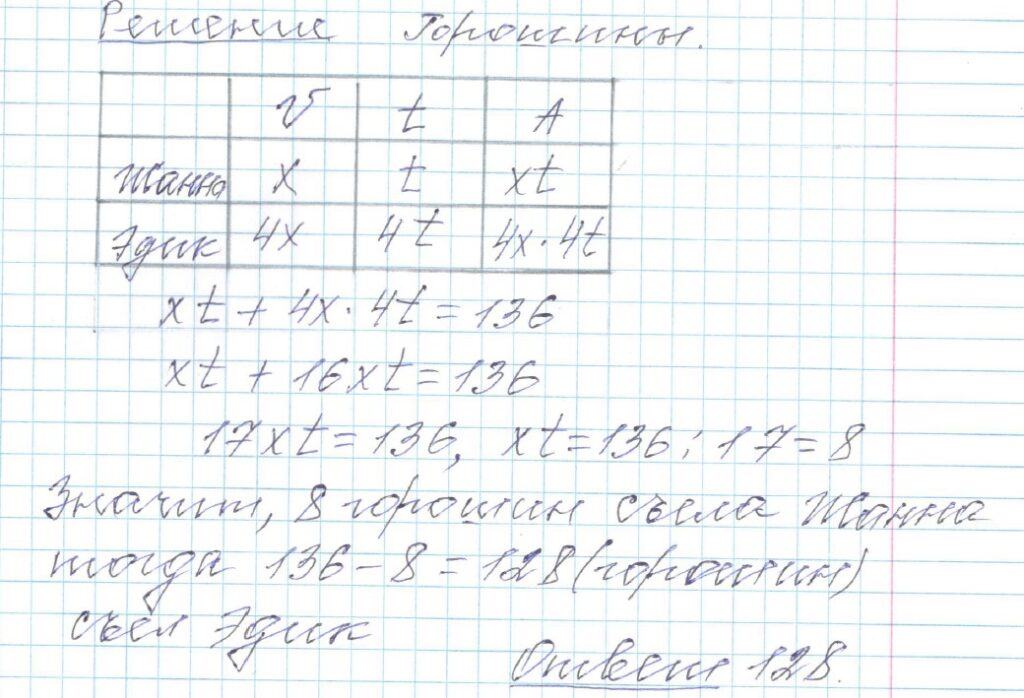 Решение Горошины.
v t A
Жанна x t xt
Эдик 4x 4t 4x·4t
xt + 4x·4t = 136
xt + 16xt = 136
17xt = 136, xt = 136 : 17 = 8
Значит, 8 горошин съела Жанна
тогда 136 - 8 = 128 (горошин)
съел Эдик
Ответ 128.